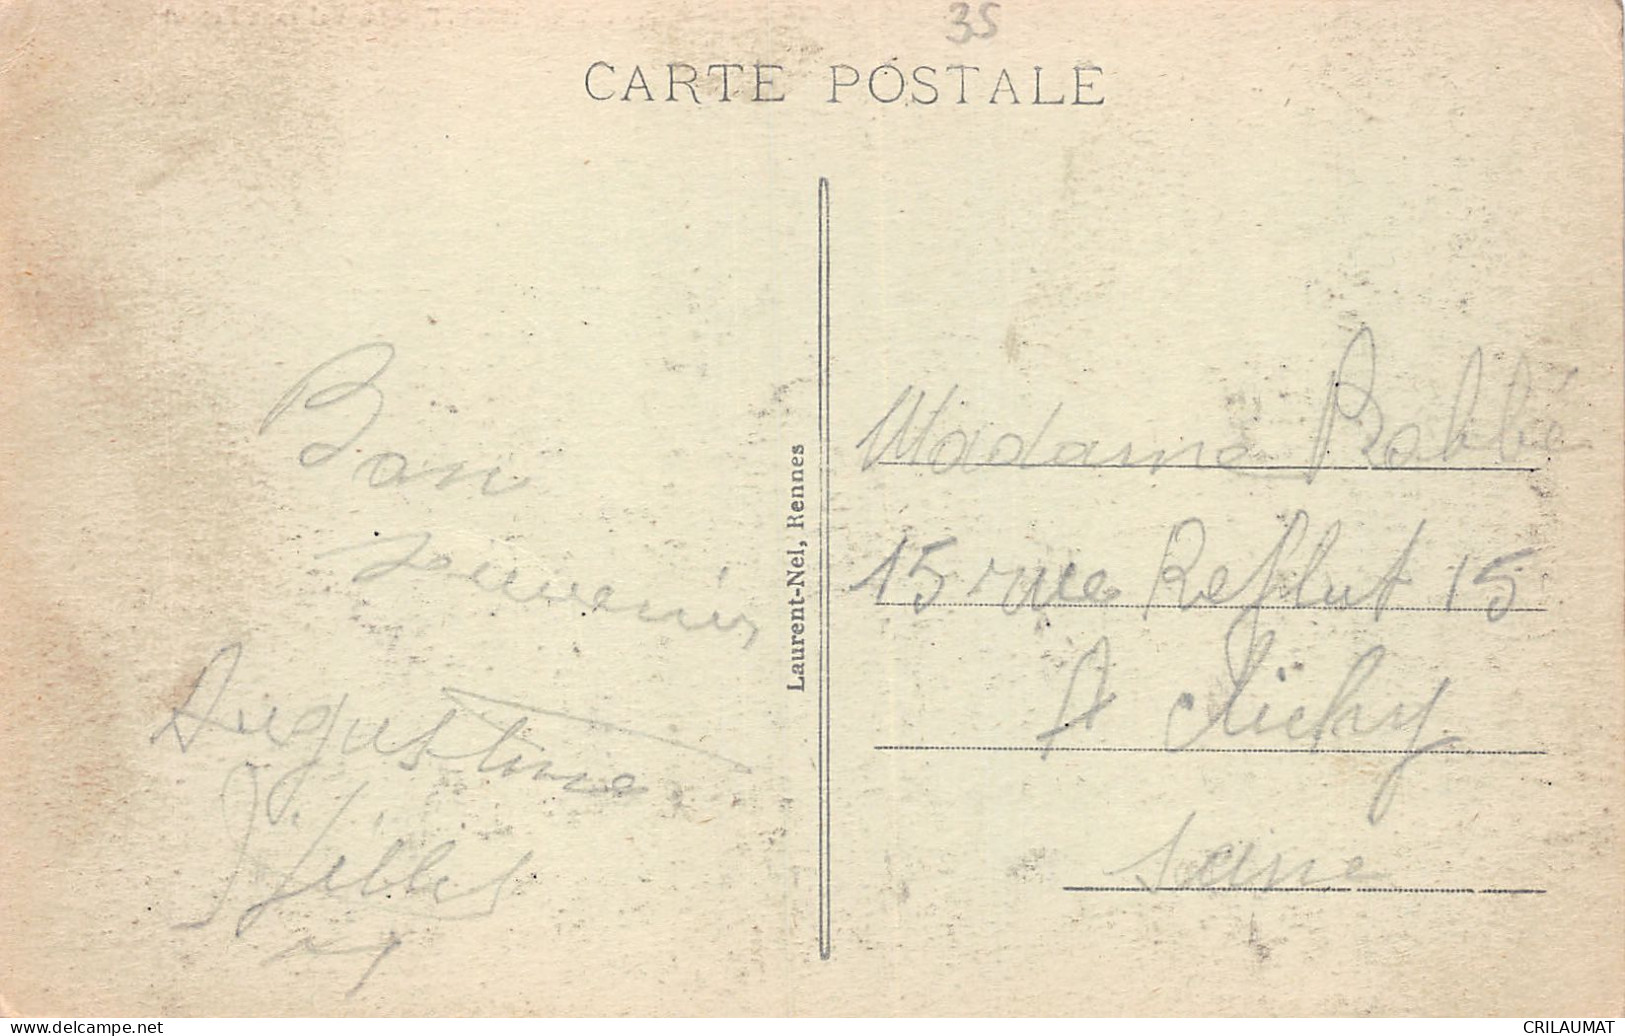 35
CARTE POSTALE
Bon
souvenir
Augustine
Laurent-Nel, Rennes
Madame Rabbé
15 rue Reflut 15
A Clichy
Seine
www.delcampe.net
CRILAUMAT